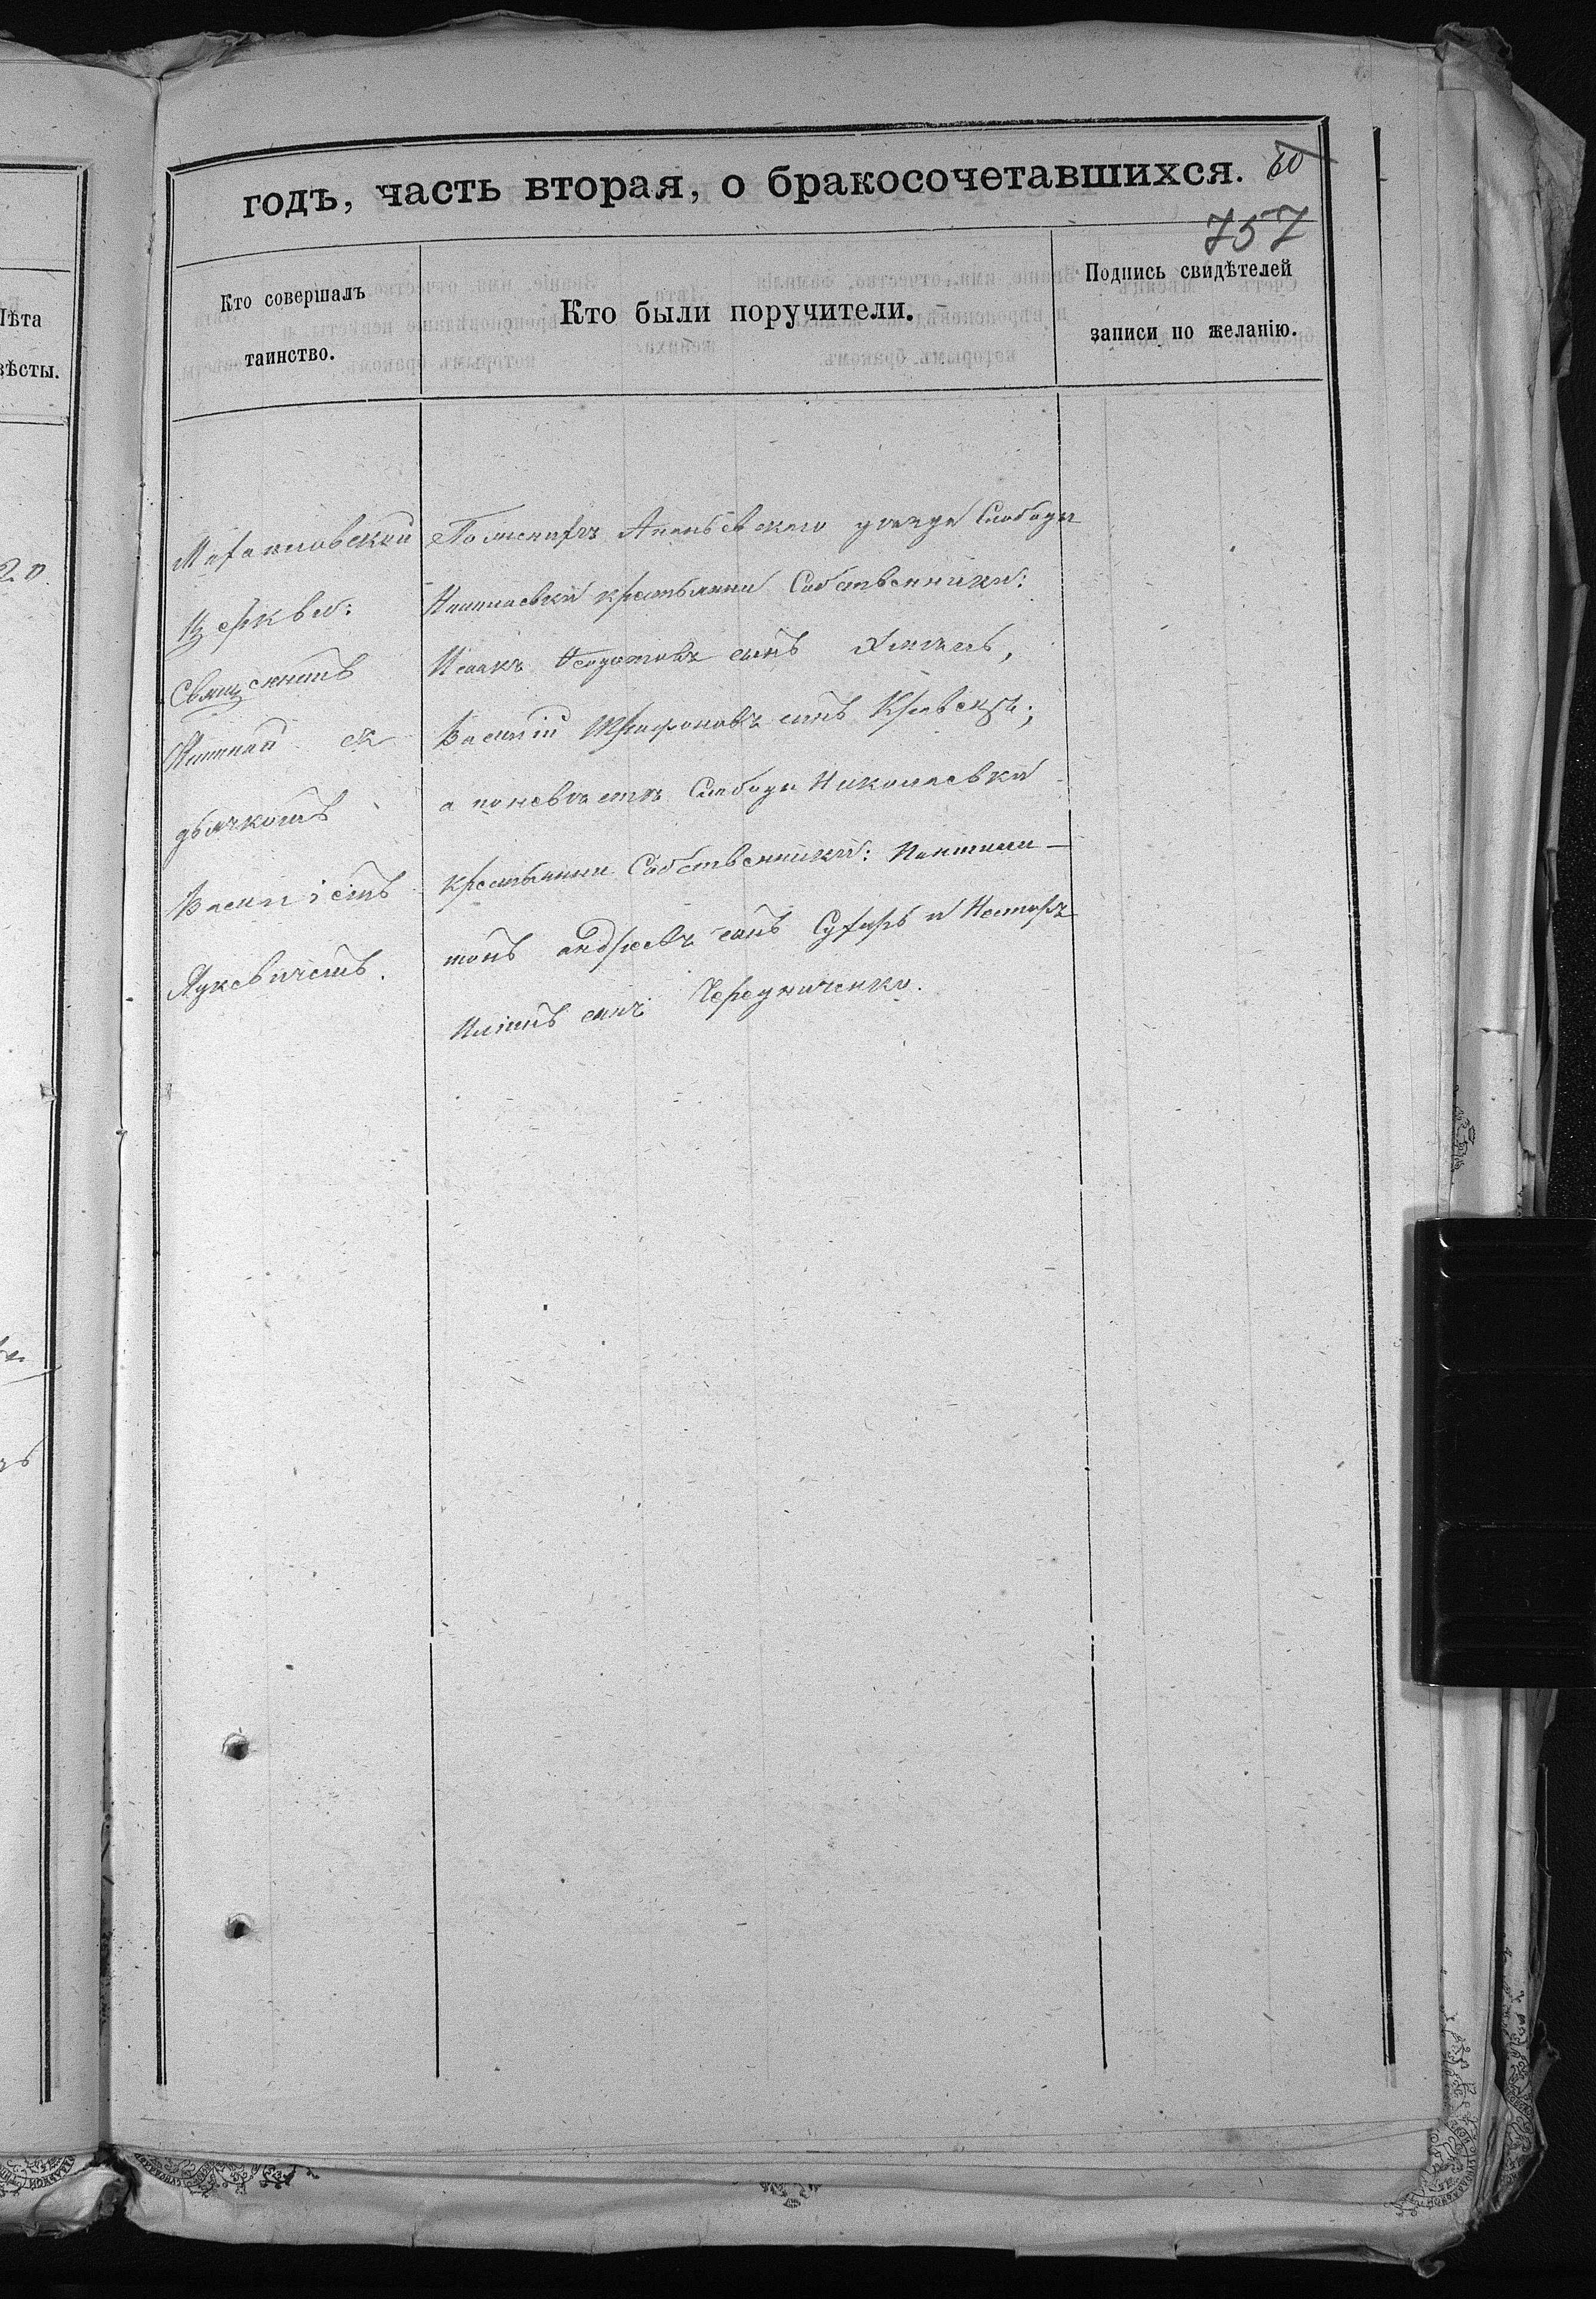 годъ, часть вторая, о бракосочетавшихся. 60
757
Кто совершалъ
таинство.
Кто были поручители.
Подпись свидѣтелей
записи по желанію.
Лѣта
вѣсты.
20.
церкви:
Священникъ
съ
дьячкомъ
Василіемъ
Лукевичемъ.
По женихѣ Ананьевского уѣзда Слободы
крестьяне Собственники:
Исакъ Федотовъ сынъ
Василій Трифоновъ сынъ Кравецъ;
а по невѣстѣ Слободы Николаевки
крестьяне Собственники: Пантили-
монъ Андреевъ сынъ Сухарь и Несторъ
сынъ Чередниченко.